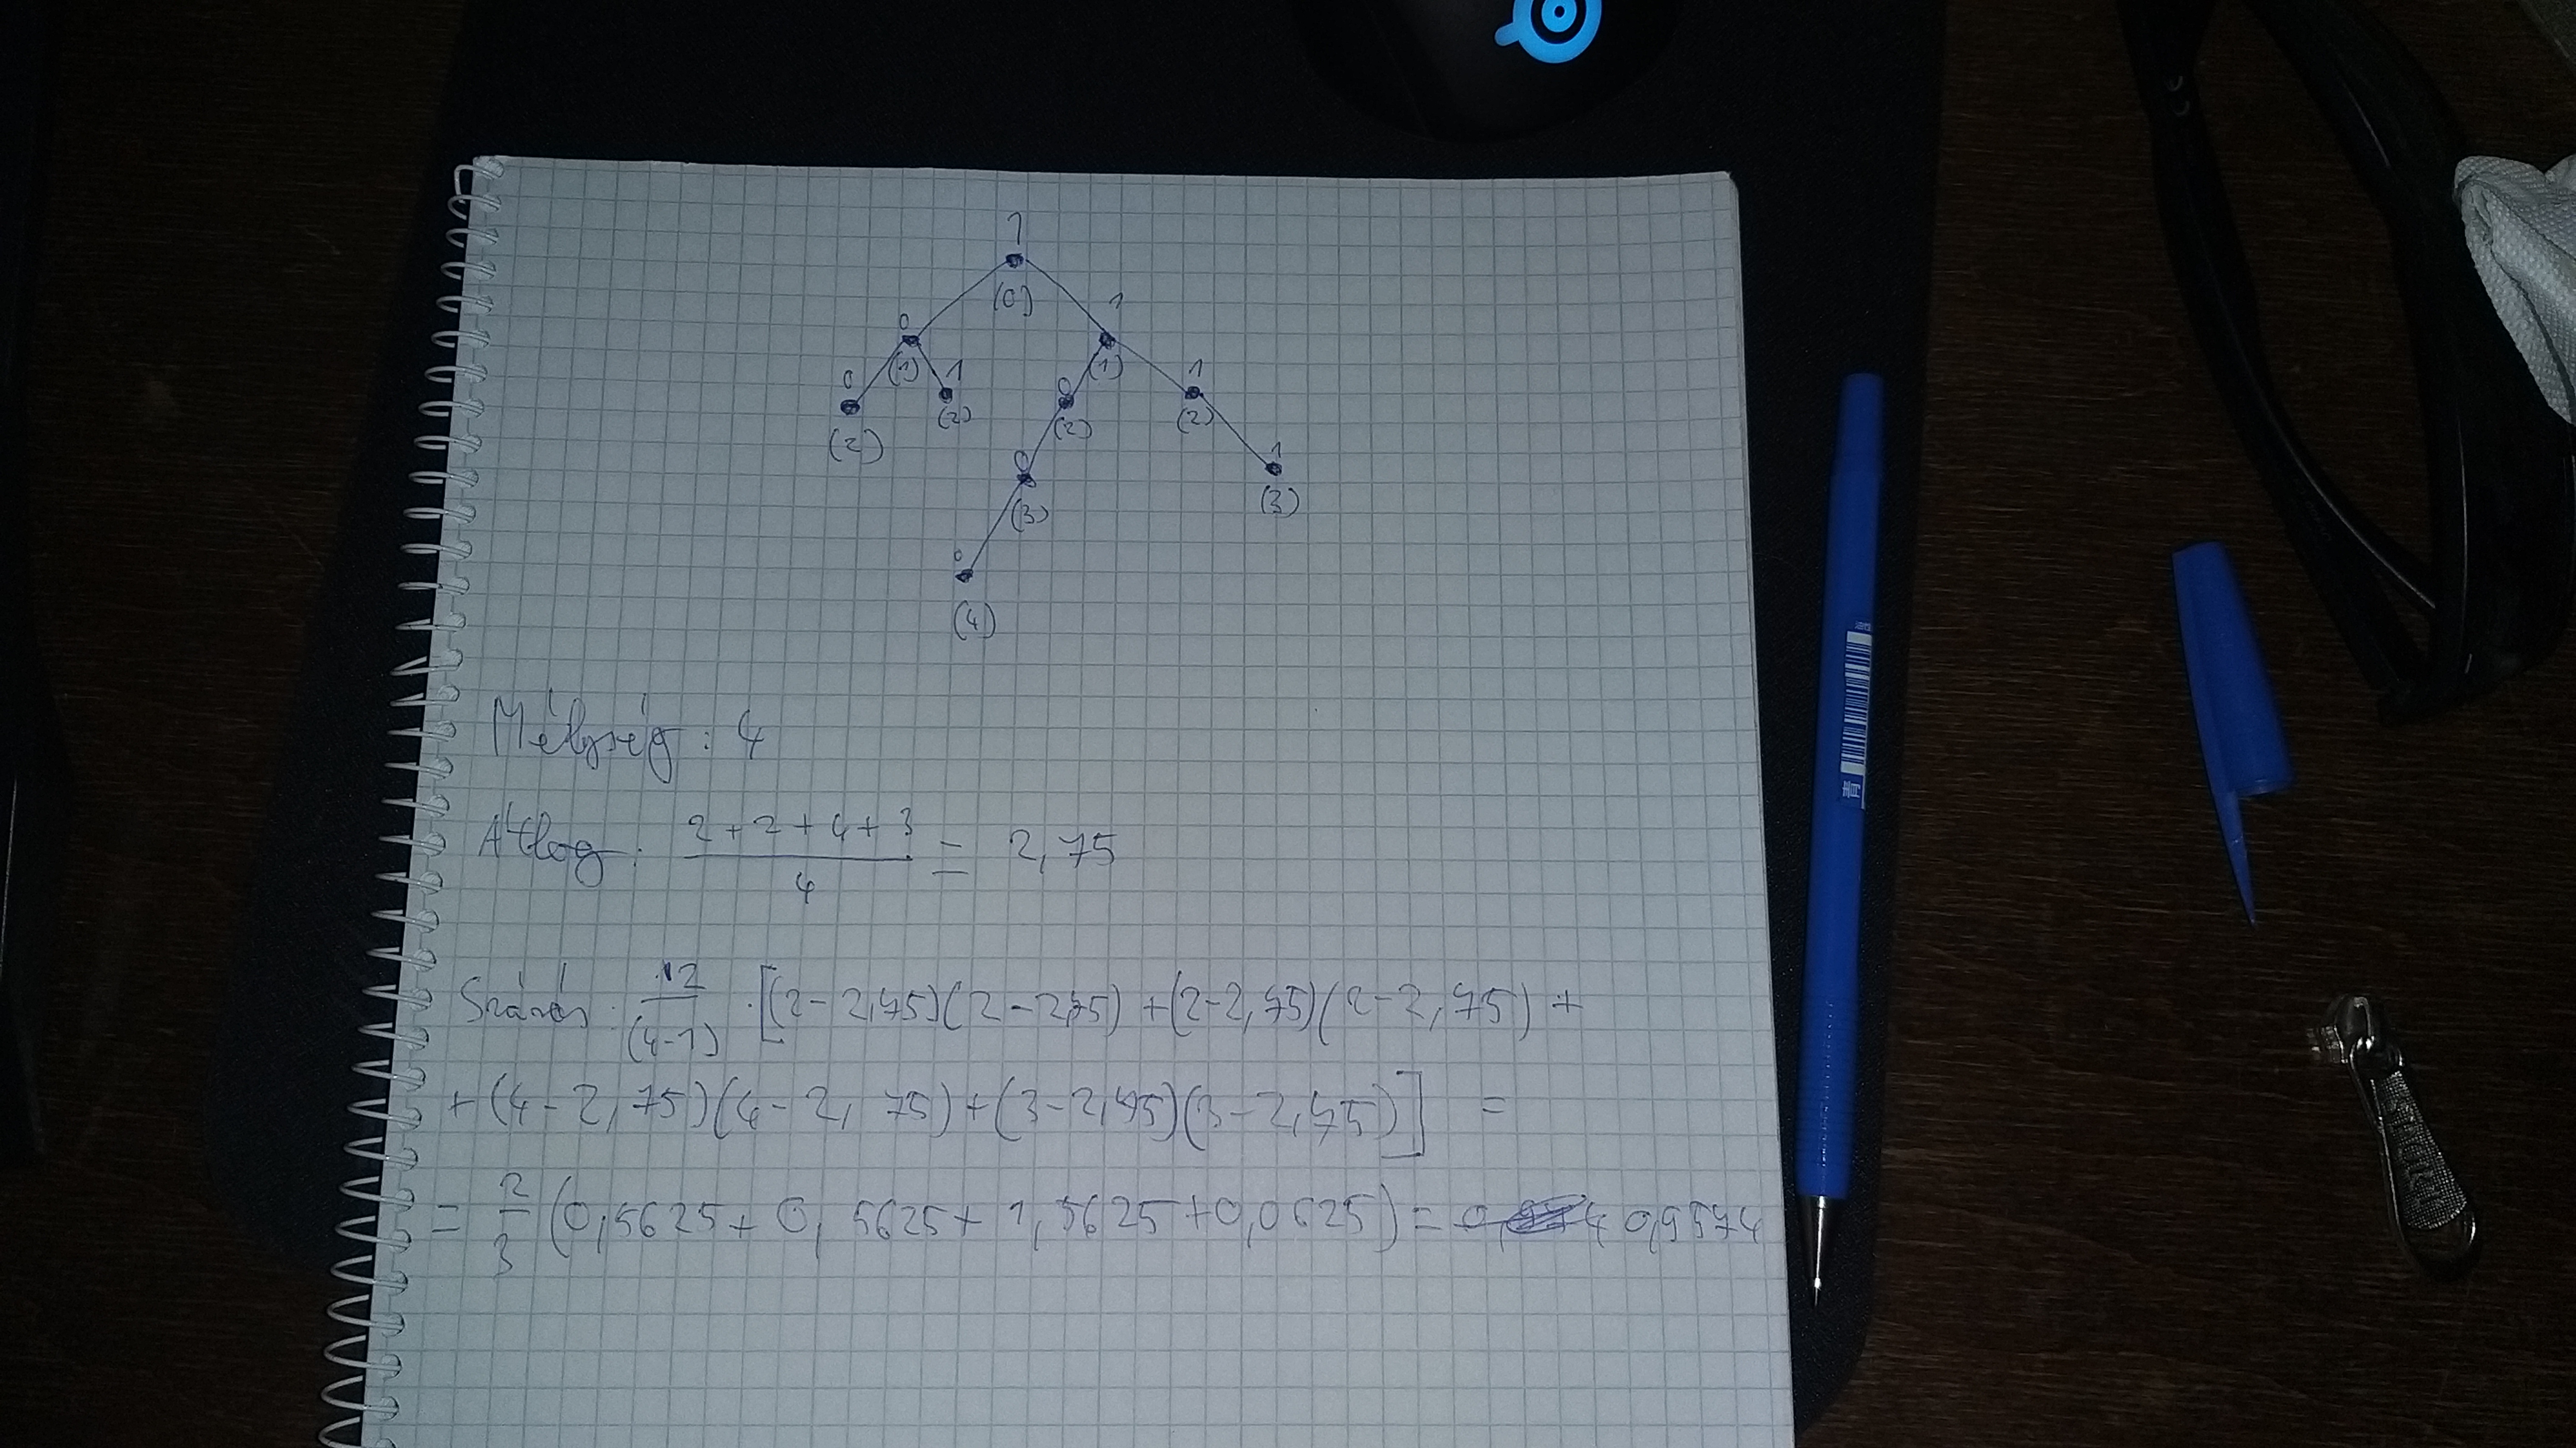 1
(0)
0 1
(1) (1)
0 1 0 1
(2) (2) (2) (2)
0 1
(3) (3)
0
(4)
Mélység: 4
Átlag: 2+2+4+3 / 4 = 2,75
Szórás: 12 / (4-1) · [(2-2,75)(2-2,75) + (2-2,75)(2-2,75) +
+ (4-2,75)(4-2,75) + (3-2,75)(3-2,75)] =
= 2/3 (0,5625 + 0,5625 + 1,5625 + 0,0625) = 0,9574